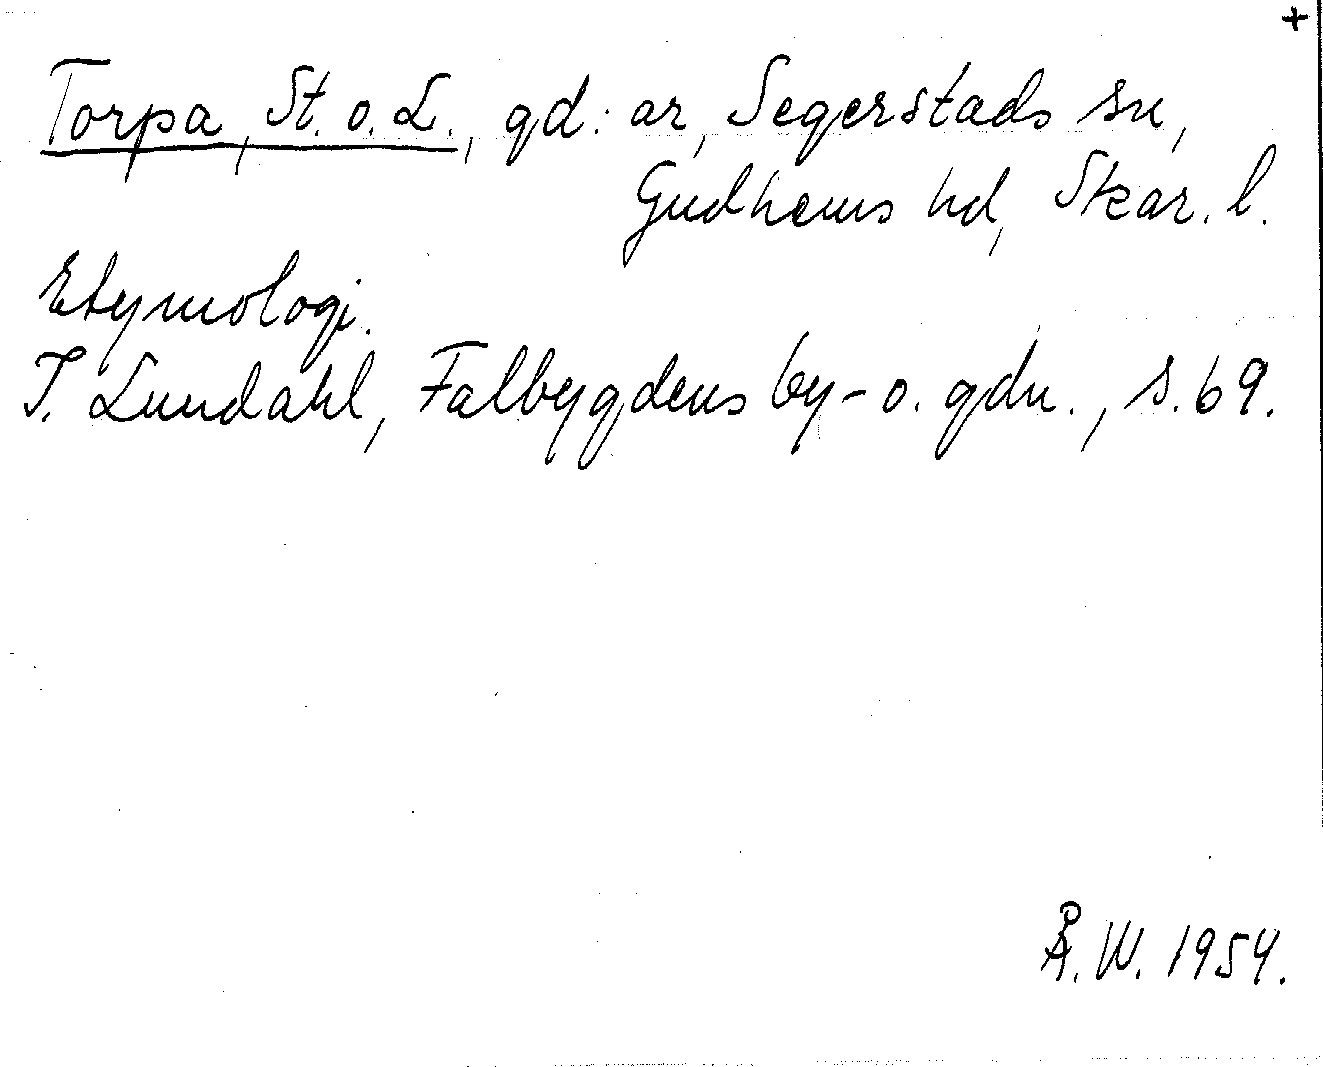 +
Torpa, St. o. L., gd:ar, Segerstads sn,
Gudhems hd, Skar. l.
Etymologi.
I. Lundahl, Falbygdens by- o. gdn., s. 69.
Å. W. 1954.